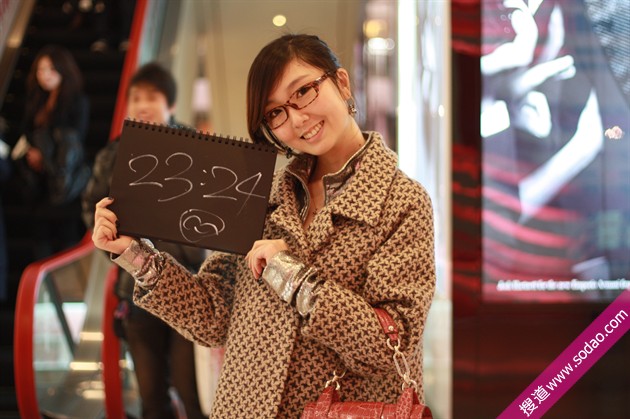 23:24
搜道www.sodao.com